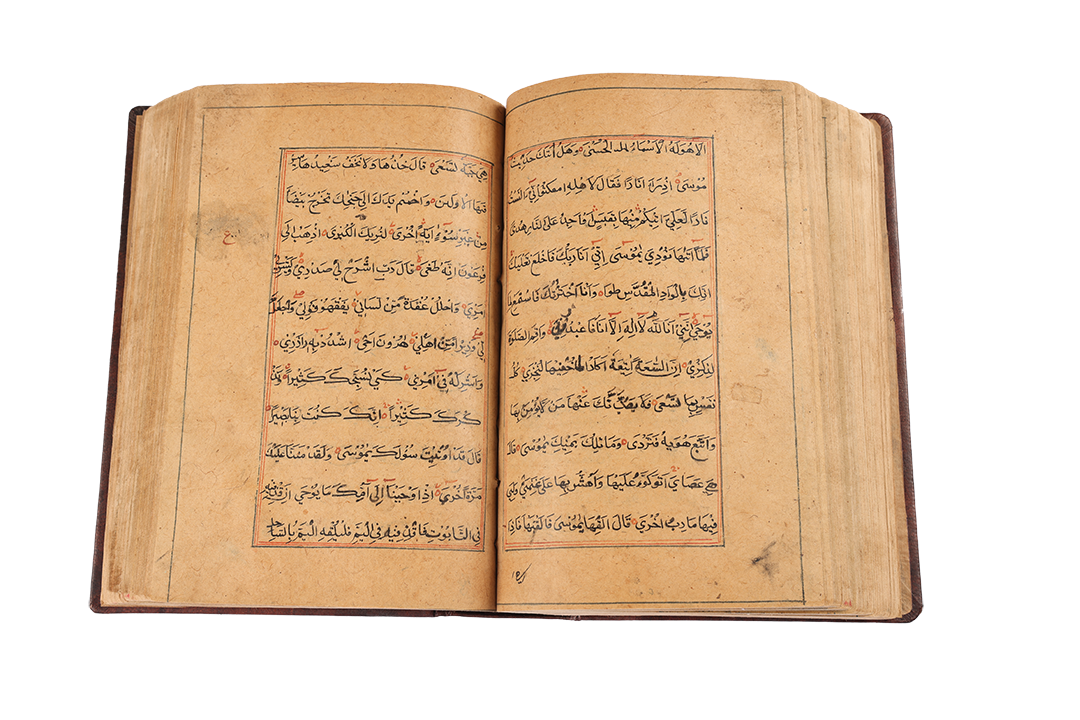 الا هو له الاسماء الحسنى وهل اتك حديث
موسى اذ را نارا فقال لاهله امكثوا اني انست
نارا لعلي اتيكم منها بقبس او اجد على النار هدى
فلما اتيها نودي يموسى اني انا ربك فاخلع نعليك
انك بالواد المقدس طوا وانا اخترتك فاستمع لما
يوحى انني انا الله لا اله الا انا فاعبدني واقم الصلوة
لذكري ان الساعة اتية اكاد اخفيها لتجزى كل
نفس بما تسعى فلا يصدنك عنها من لا يؤمن بها
واتبع هويه فتردى وما تلك بيمينك يموسى قال
هي عصاي اتوكؤا عليها واهش بها على غنمي ولي
فيها مارب اخرى قال القها يموسى فالقيها فاذا
هي حية تسعى قال خذها ولا تخف سنعيدها سير
تها الاولى واضمم يدك الى جناحك تخرج بيضا
من غير سوء اية اخرى لنريك من ايتنا الكبرى اذهب الى
فرعون انه طغى قال رب اشرح لي صدري ويسر لي
امري واحلل عقدة من لساني يفقهوا قولي واجعل
لي وزيرا من اهلي هرون اخي اشدد به ازري
واشركه في امري كي نسبحك كثيرا ونذ
كرك كثيرا انك كنت بنا بصيرا
قال قد اوتيت سولك يموسى ولقد مننا عليك
مرة اخرى اذ اوحينا الى امك ما يوحى ان اقذفيه
في التابوت فاقذفيه في اليم فليلقه اليم بالساحل
ع